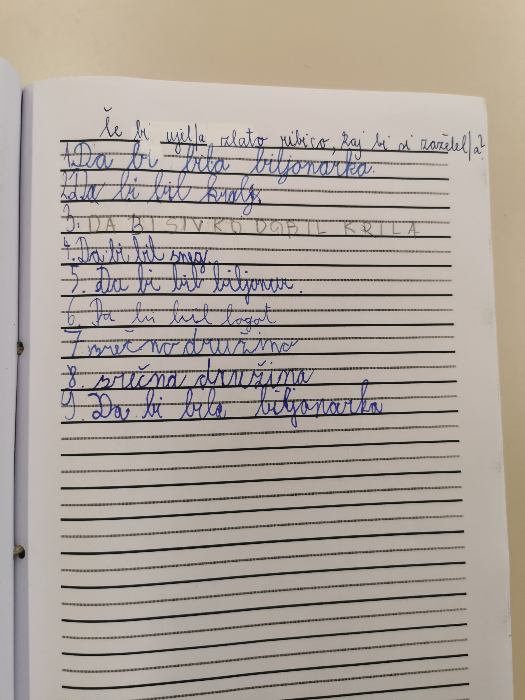 Če bi ujel/a zlato ribico, kaj bi si zaželel/a?
1. Da bi bila biljonarka.
2. Da bi bil kralj.
3. DA BI SIVKO DOBIL KRILA
4. Da bi bil sneg.
5. Da bi bil biljonar.
6. Da bi bil bogat
7. srečno družino
8. srečna družina
9. Da bi bila biljonarka